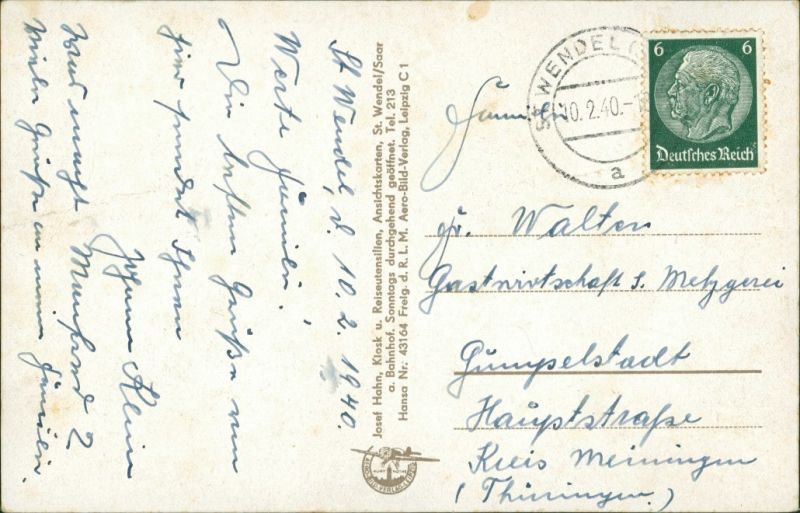 St Wendel, d. 10.2.1940.
Werte Familie!
Die besten Grüße von
hier sendet Ihnen
Johann Klein
Viele Grüße an meine Familie.
Josef Hahn, Kiosk u. Reiseutensilien, Ansichtskarten, St. Wendel/Saar
a. Bahnhof. Sonntags durchgehend geöffnet. Tel. 213
Hansa Nr. 43164 Freig. d. R. L. M. Aero-Bild-Verlag, Leipzig C 1
ST. WENDEL
10.2.40.-1
a
6 6
Deutsches Reich
Familie
Fr. Walter
Gastwirtschaft & Metzgerei
Gumpelstadt
Hauptstraße
Kreis Meiningen
(Thüringen.)